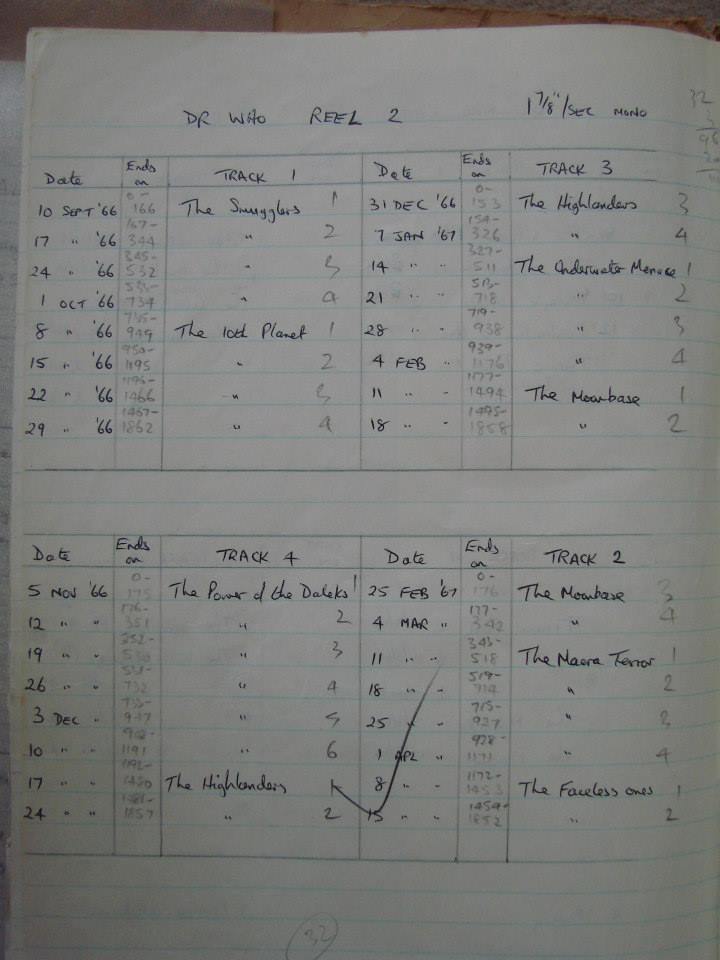 DR WHO REEL 2 1 7/8"/SEC MONO
Date Ends on TRACK 1 Date Ends on TRACK 3
10 SEPT '66 0- 166 The Smugglers 1 31 DEC '66 0- 153 The Highlanders 3
17 " '66 167- 344 " 2 7 JAN '67 154- 326 " 4
24 " '66 345- 532 " 3 14 " " 327- 511 The Underwater Menace 1
1 OCT '66 734 " 4 21 " " 718 " 2
8 " '66 735- 949 The 10th Planet 1 28 " " 719- 938 " 3
15 " '66 950- 1195 " 2 4 FEB " 939- 1176 " 4
22 " '66 1196- 1466 " 3 11 " " 1177- 1494 The Moonbase 1
29 " '66 1467- 1862 " 4 18 " " 1495- 1858 " 2
Date Ends on TRACK 4 Date Ends on TRACK 2
5 NOV '66 0- 175 The Power of the Daleks 1 25 FEB '67 0- 176 The Moonbase 3
12 " " 176- 351 " 2 4 MAR " 177- 342 " 4
19 " " 352- " 3 11 " " 343- 518 The Macra Terror 1
26 " " 732 " 4 18 " " 519- 714 " 2
3 DEC " 733- " 5 25 " " 715- 927 " 3
10 " " 1191 " 6 1 APL " 928- 1171 " 4
17 " " 1192- The Highlanders 1 8 " " 1172- 1453 The Faceless ones 1
24 " " 1857 " 2 15 " " 1454- 1852 " 2
32